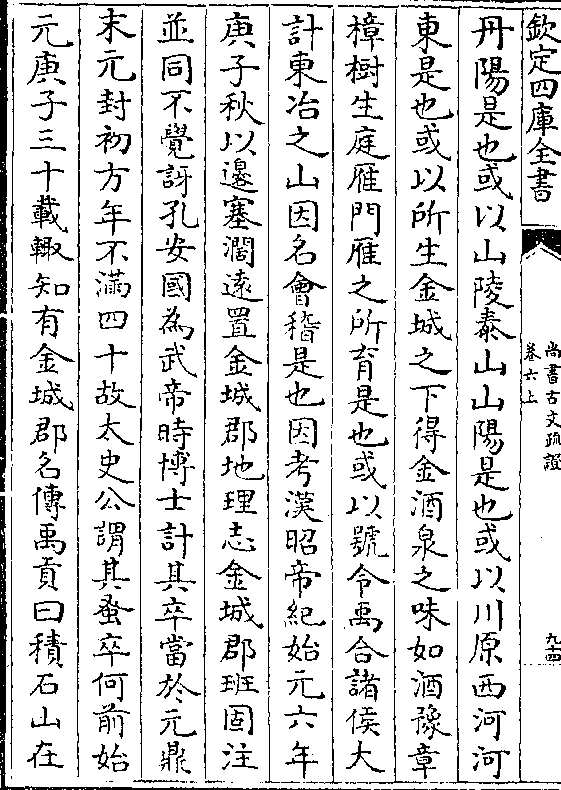 欽定四庫全書
尚書古文疏證
卷六上
九十四
丹陽是也或以山陵泰山山陽是也或以川原西河河
東是也或以所生金城之下得金酒泉之味如酒豫章
樟樹生庭雁門雁之所育是也或以號令禹合諸侯大
計東冶之山因名會稽是也因考漢昭帝紀始元六年
庚子秋以邊塞濶遠置金城郡地理志金城郡班固注
並同不覺訝孔安國為武帝時博士計其卒當於元鼎
末元封初方年不滿四十故太史公謂其蚤卒何前始
元庚子三十載輙知有金城郡名傳禹貢曰積石山在